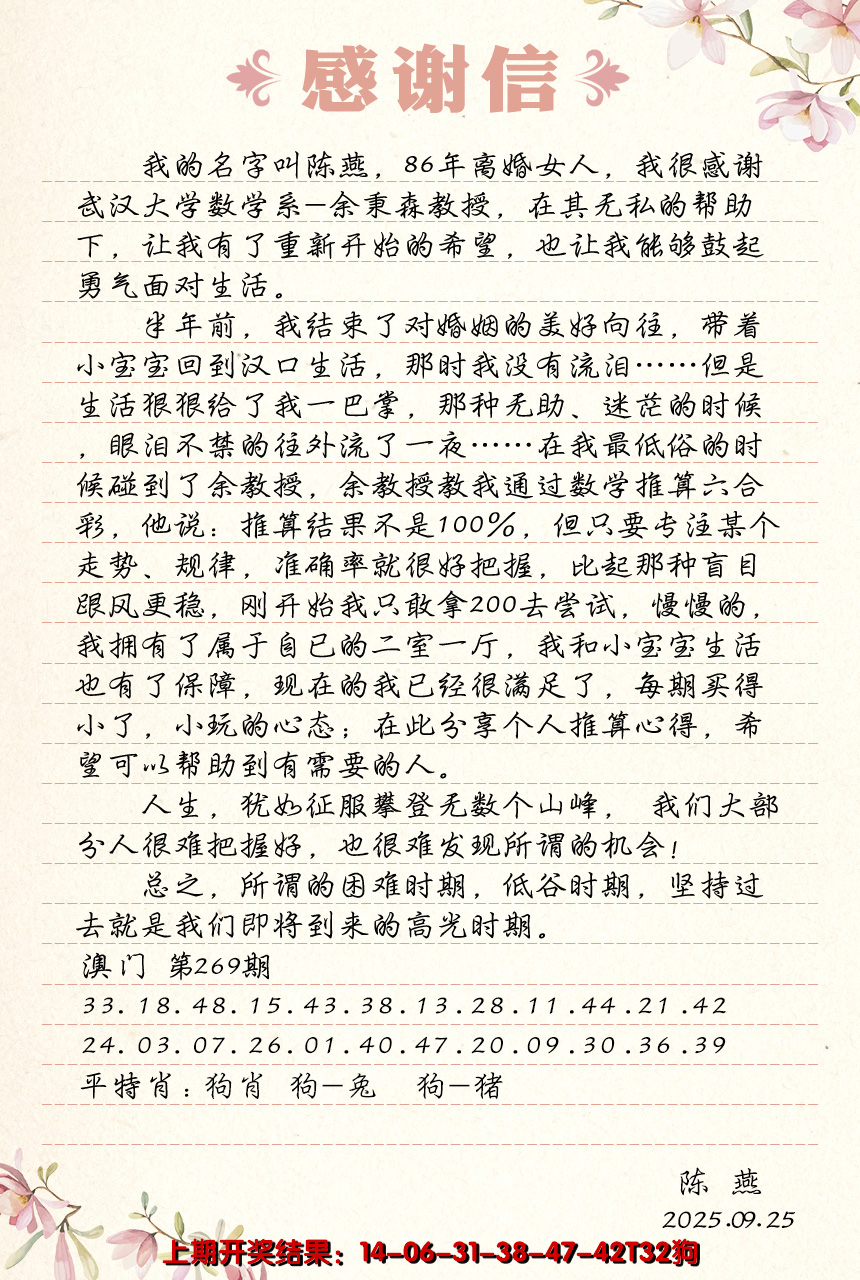 感谢信
我的名字叫陈燕，86年离婚女人，我很感谢
武汉大学数学系—余秉森教授，在其无私的帮助
下，让我有了重新开始的希望，也让我能够鼓起
勇气面对生活。
半年前，我结束了对婚姻的美好向往，带着
小宝宝回到汉口生活，那时我没有流泪……但是
生活狠狠给了我一巴掌，那种无助、迷茫的时候
，眼泪不禁的往外流了一夜……在我最低俗的时
候碰到了余教授，余教授教我通过数学推算六合
彩，他说：推算结果不是100%，但只要专注某个
走势、规律，准确率就很好把握，比起那种盲目
跟风更稳，刚开始我只敢拿200去尝试，慢慢的，
我拥有了属于自已的二室一厅，我和小宝宝生活
也有了保障，现在的我已经很满足了，每期买得
小了，小玩的心态；在此分享个人推算心得，希
望可以帮助到有需要的人。
人生，犹如征服攀登无数个山峰， 我们大部
分人很难把握好，也很难发现所谓的机会！
总之，所谓的困难时期，低谷时期，坚持过
去就是我们即将到来的高光时期。
澳门 第269期
33.18.48.15.43.38.13.28.11.44.21.42
24.03.07.26.01.40.47.20.09.30.36.39
平特肖：狗肖 狗—兔 狗—猪
陈 燕
2025.09.25
上期开奖结果：14-06-31-38-47-42T32狗